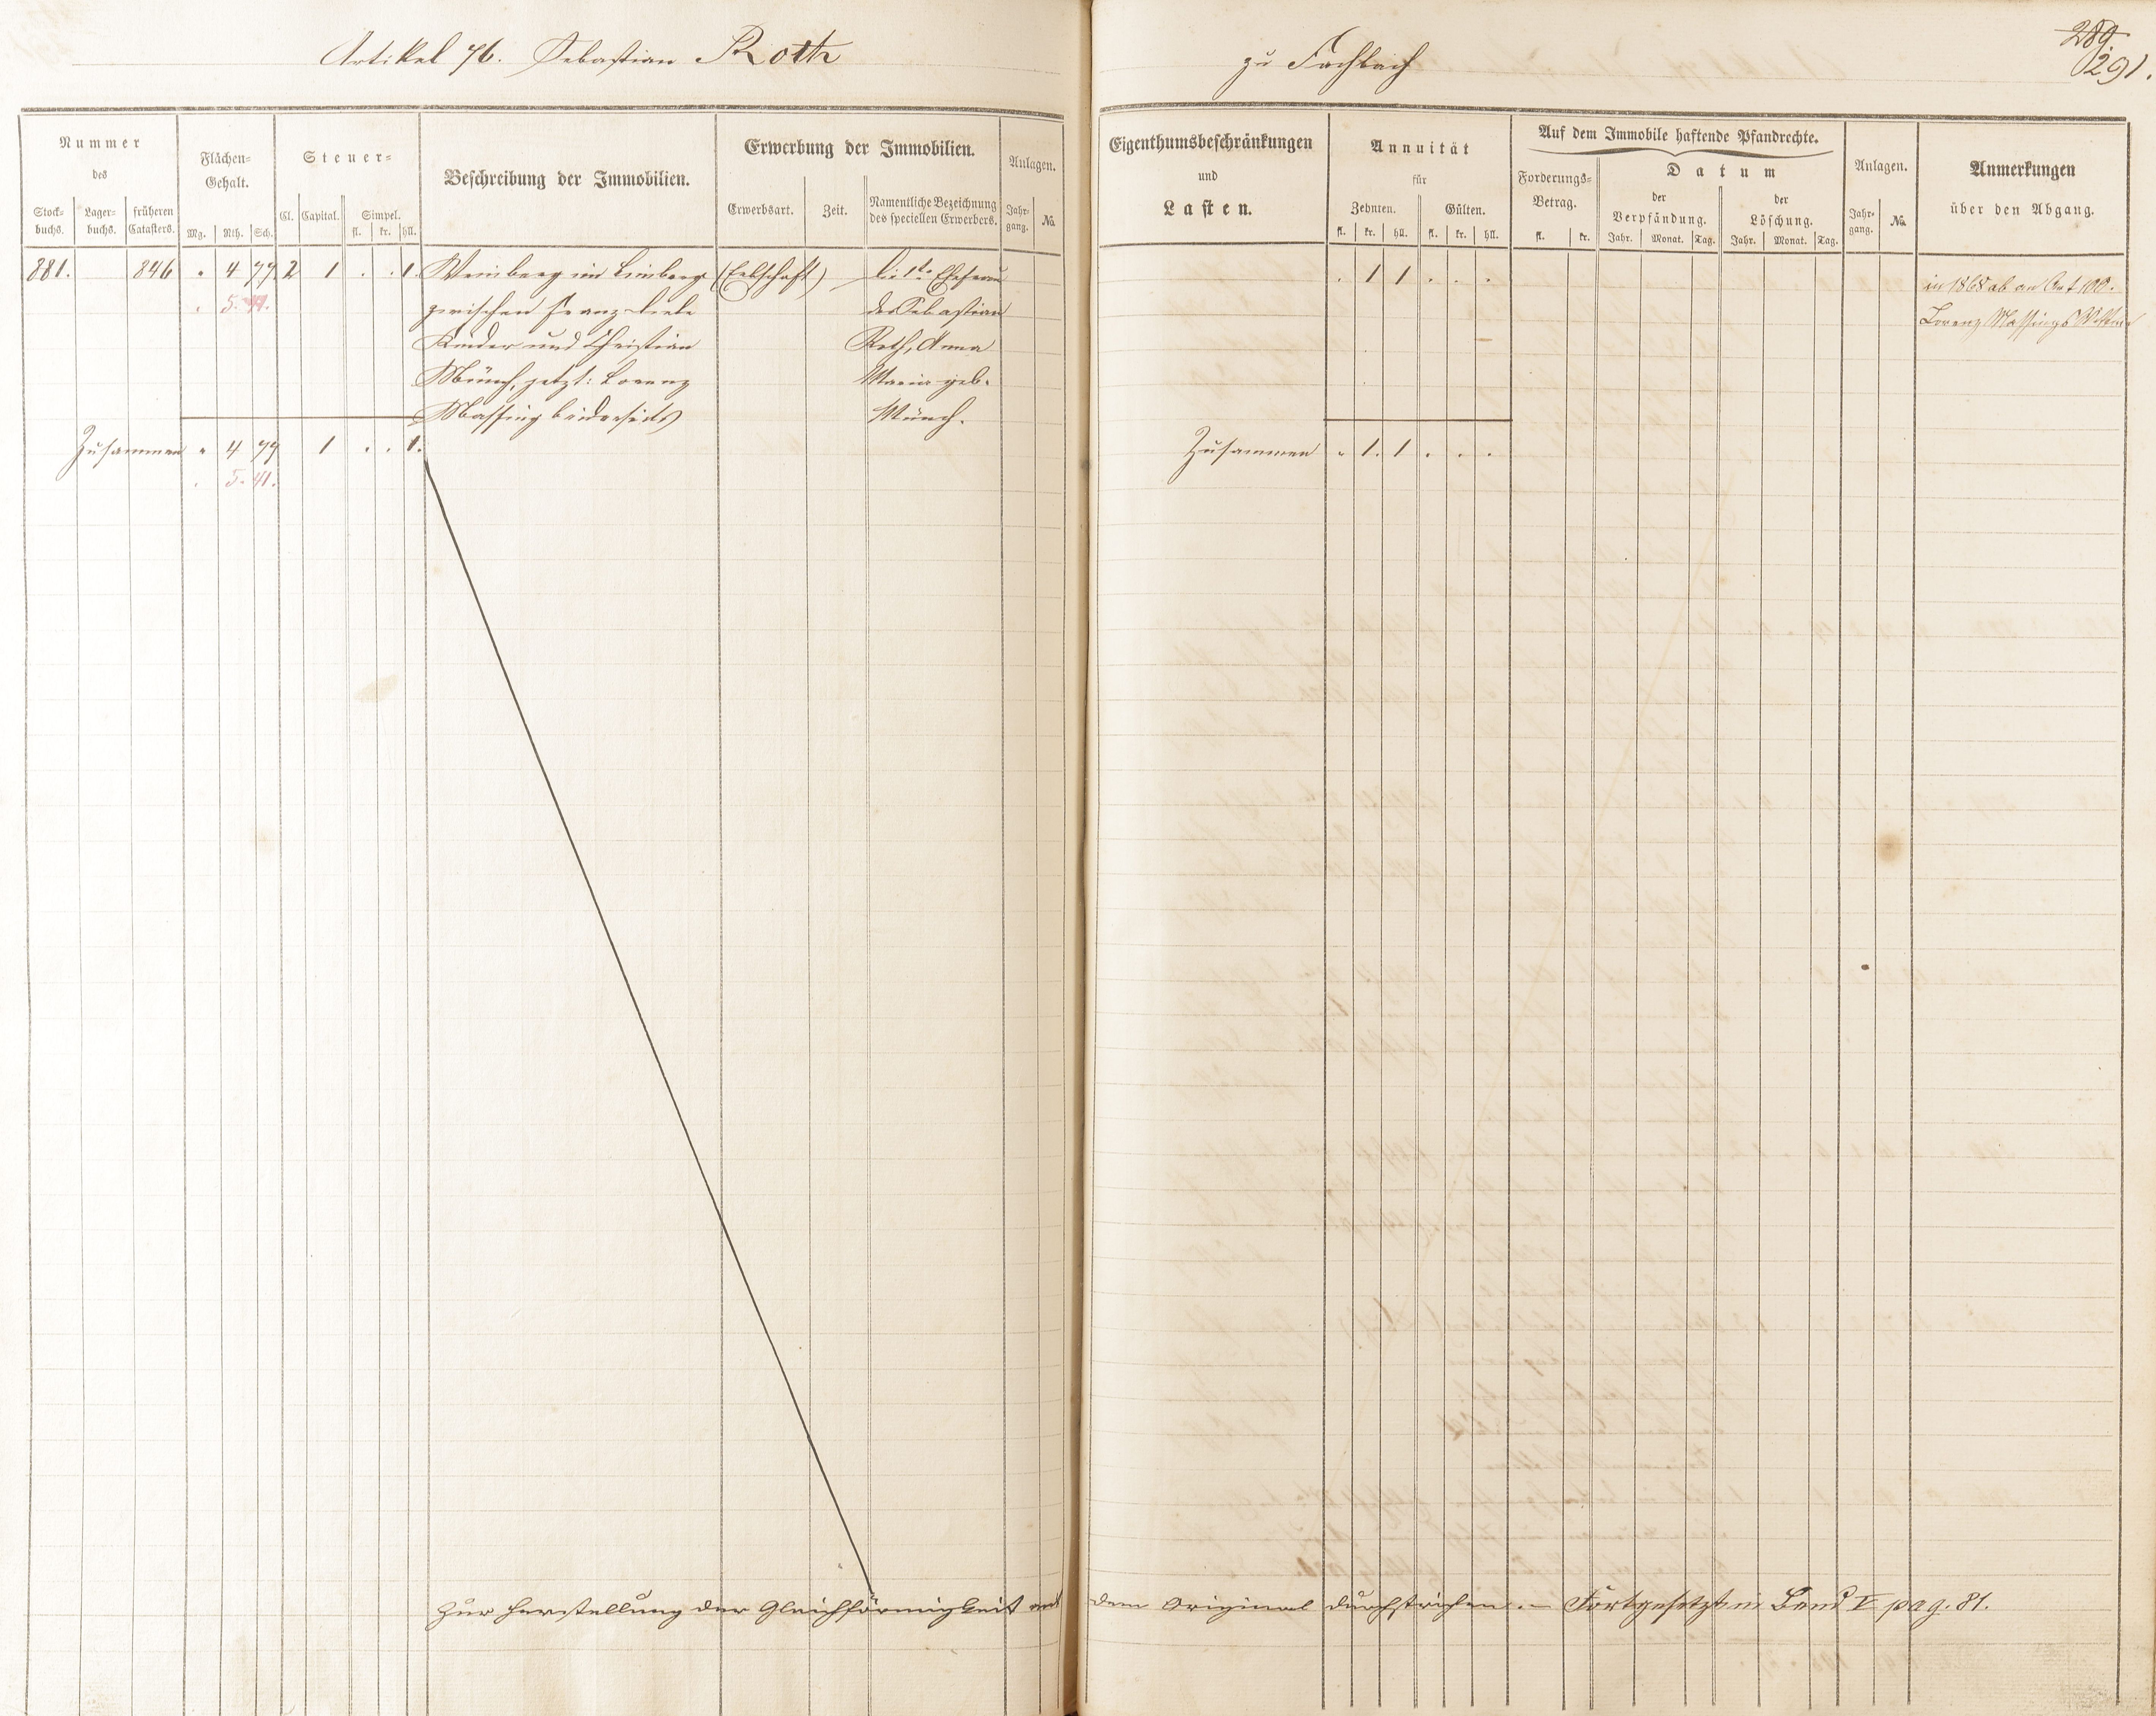 Artikel 76. Sebastian Roth zu Fachbach
289
291.
Nummer
des
Stock-
buchs.
Lager-
buchs.
früheren
Catasters.
Flächen-
Gehalt.
Mg. Rth. Sch.
Steuer-
Cl. Capital. Simpel.
fl. kr. hll.
Beschreibung der Immobilien.
Erwerbung der Immobilien.
Erwerbsart. Zeit. Namentliche Bezeichnung
des speciellen Erwerbers.
Anlagen.
Jahr-
gang. No.
Eigenthumsbeschränkungen
und
Lasten.
Annuität
für
Zehnten. Gülten.
fl. kr. hll. fl. kr. hll.
Auf dem Immobile haftende Pfandrechte.
Forderungs-
Betrag.
fl. kr.
Datum
der
Verpfändung.
Jahr. Monat. Tag.
der
Löschung.
Jahr. Monat. Tag.
Anlagen.
Jahr-
gang. No.
Anmerkungen
über den Abgang.
881. 846 " 4 79 2 1 . . 1. Weinberg im Limberg (Erbschaft) die 1te Ehefrau . 1 1 . . . in 1868 ab an Art 100.
. 5. 41. zwischen Franz des Sebastian Lorenz Massings Wittwe
Kinder und Christian Roth, Anna
Münch, jetzt: Lorenz Maria geb.
Massing beiderseits Münch.
Zusammen " 4 79 1 . . 1. Zusammen " 1. 1 . . .
. 5. 41.
Zur Herstellung der Gleichförmigkeit mit dem Original durchstrichen. – Fortgesetzt in Band V pag. 81.